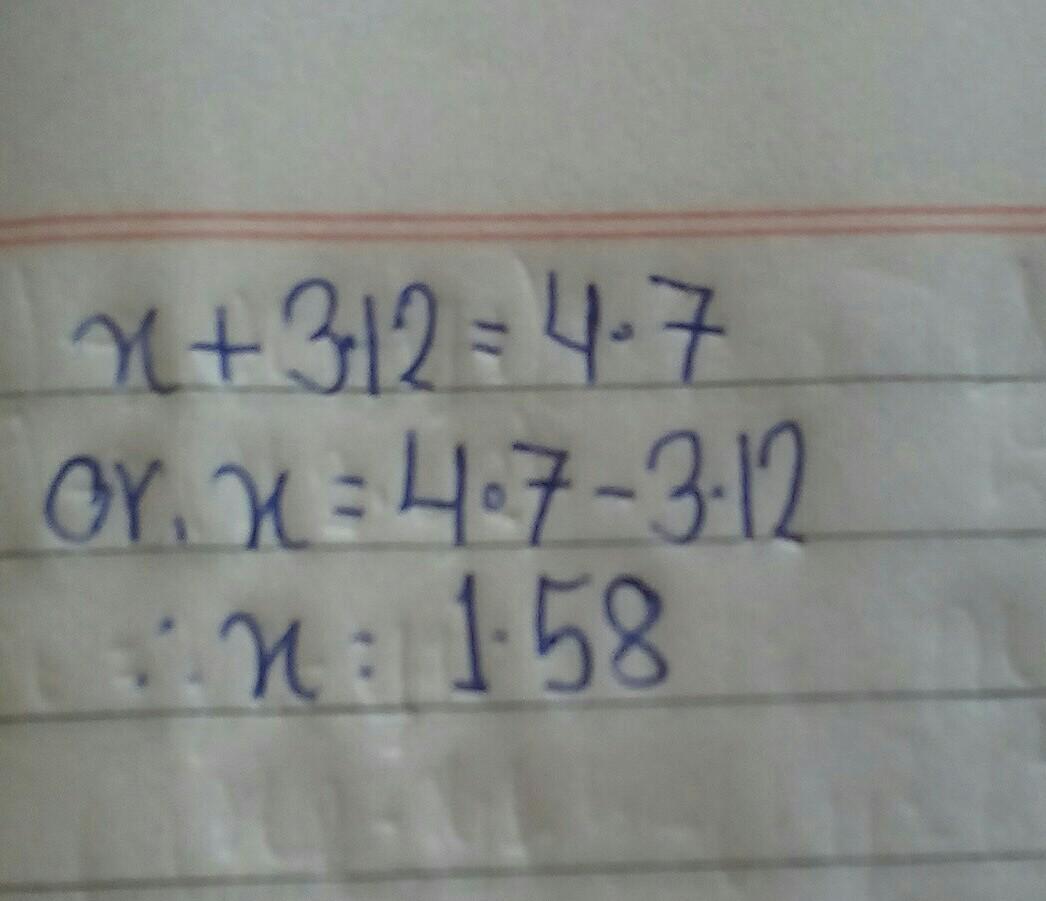 x + 3·12 = 4·7
or, x = 4·7 - 3·12
∴ x = 1·58